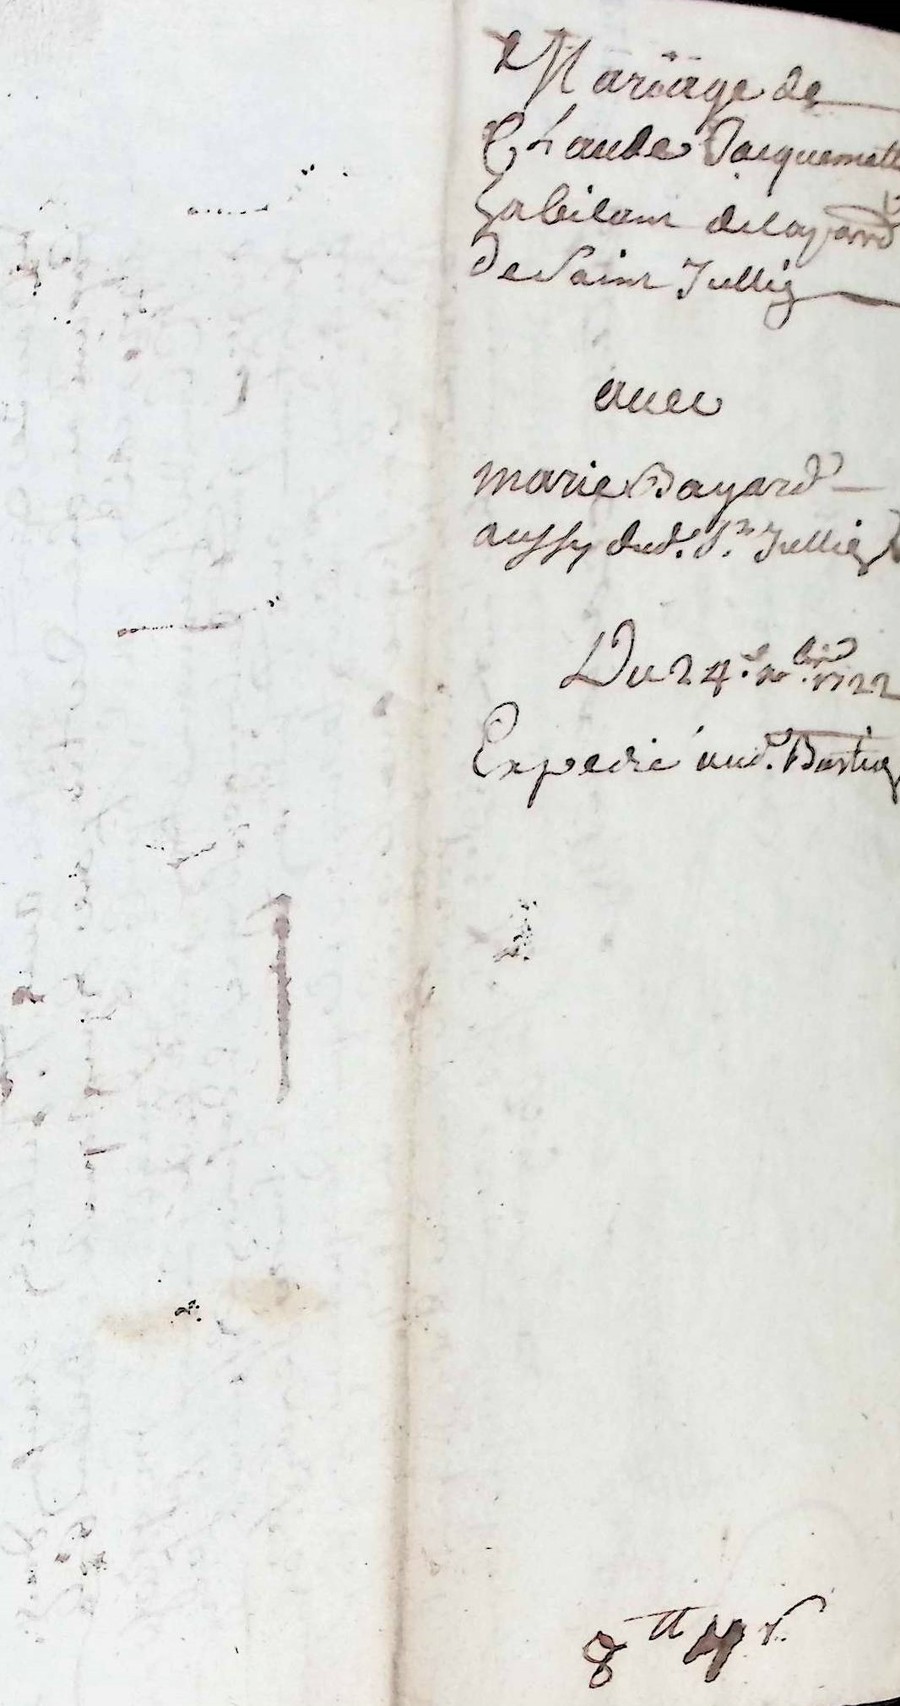 Mariage de
Claude Jacquemett
habitant de la parr
De Saint Jullien
avec
marie Bayard
aussy dud. St. Jullien
Du 24.e 9bre 1722
Expedié aud.
8tt